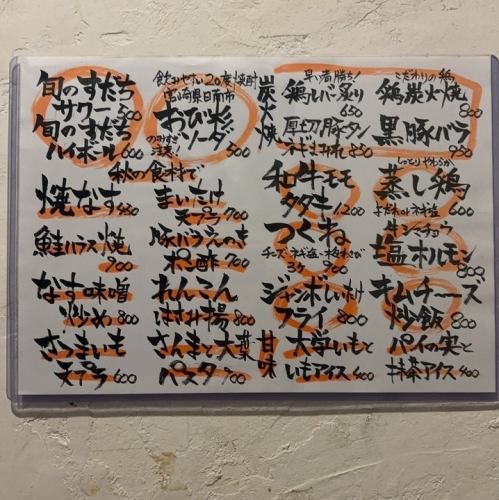 旬のすだち
サワー
旬のすだち
ハイボール 600
飲みやすい20度焼酎
宮崎県日南市
おび杉
ソーダ
のみすぎ
注意! 500
炭火焼
早い者勝ち!
鶏レバ炙り
650
厚切豚タン
ネギまみれ 850
こだわりの鶏
鶏炭火焼
黒豚バラ
950
秋の食材で
焼なす 450
まいたけ
天プラ 700
鮭ハラス焼
700
豚バラえのき
ポン酢 700
なす味噌
炒め 800
れんこん
はさみ揚 800
さつまいも
天プラ 600
さんまと大葉
パスタ 900
和牛モモ
タタキ 1,200
しっとりやわらか
蒸し鶏
よだれorネギ塩 600
つくね
チーズ・ネギ塩・梅わさび
3ヶ 700
牛シマチョウ
塩ホルモン
800
ジャンボしいたけ
フライ 800
キムチーズ
炒飯 800
甘味
大学いもと
いもアイス 400
パイの実と
抹茶アイス 400